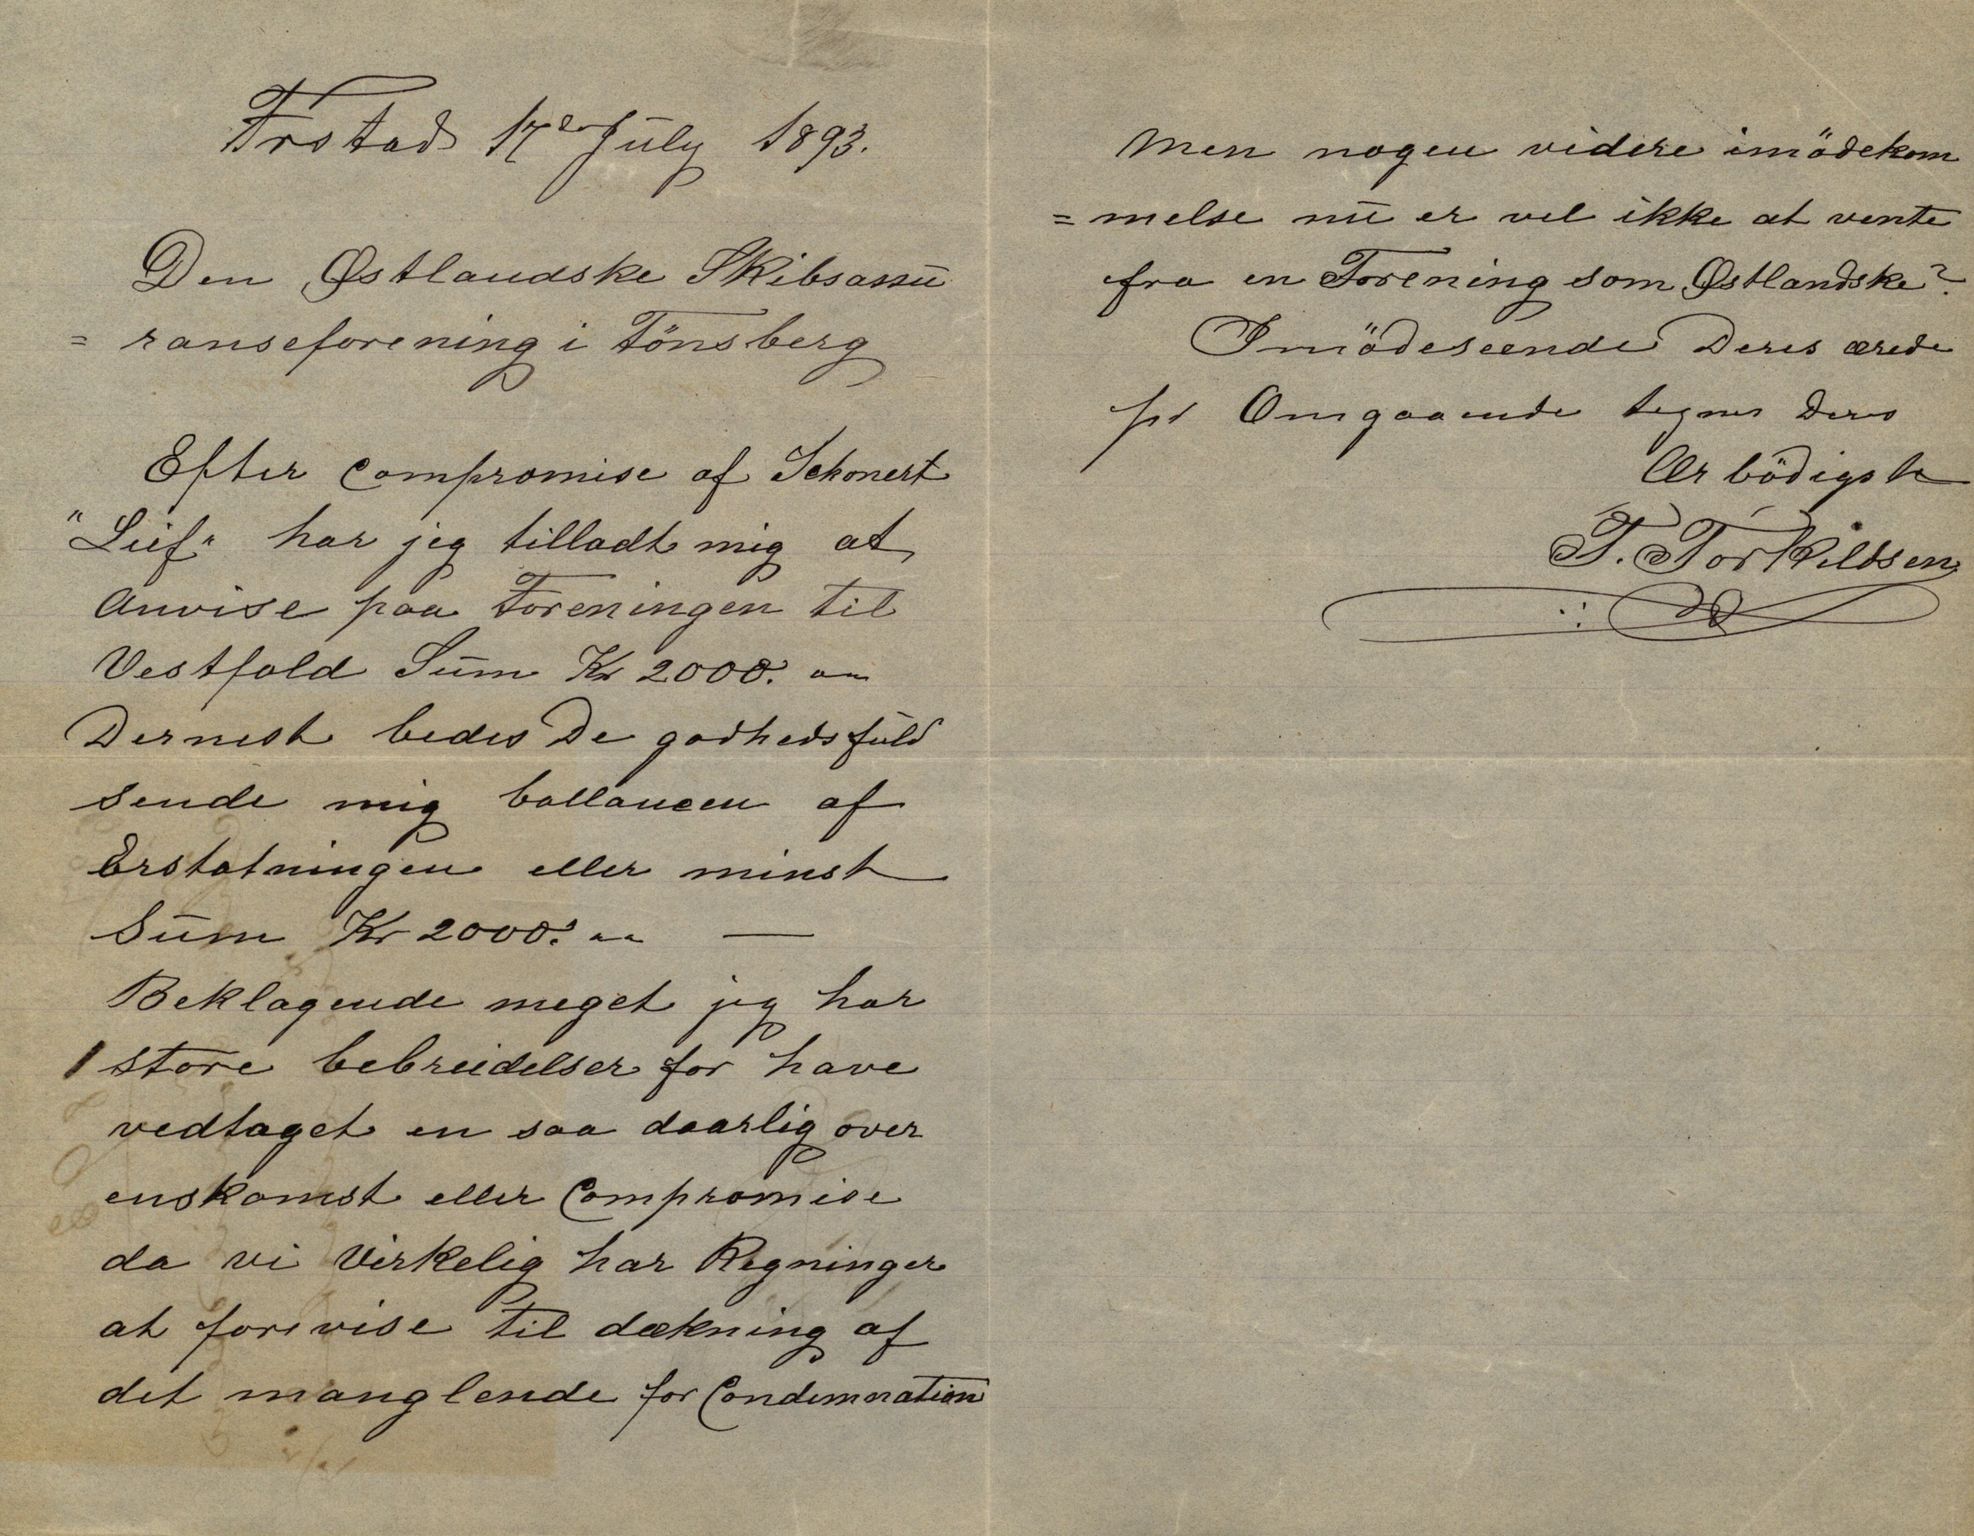 Frstad 17de July 1893.
Den Østlandske Skibsassu
= ranseforening i Tönsberg
Efter Compromise af Schonert
"Leif" har jeg tilladt mig at
Anvise paa Foreningen til
Vestfold Sum Kr 2000.
Dernest bedes De godhedsfuld
sende mig ballancen af
Erstatningen eller minst
Sum Kr 2000. —
Beklagende meget jeg har
store bebreidelser for have
vedtaget en saa daarlig over
enskomst eller Compromise
da vi Virkelig har Regninger
at forevise til dækning af
det manglende for Condemnation
Men nogen videre imödekom
= melse nu er vel ikke at vente
fra en Forening som Østlandske?
Imödeseende Deres ærede
pr Omgaaende tegnes Deres
Ærbödigst
T. Torkildsen